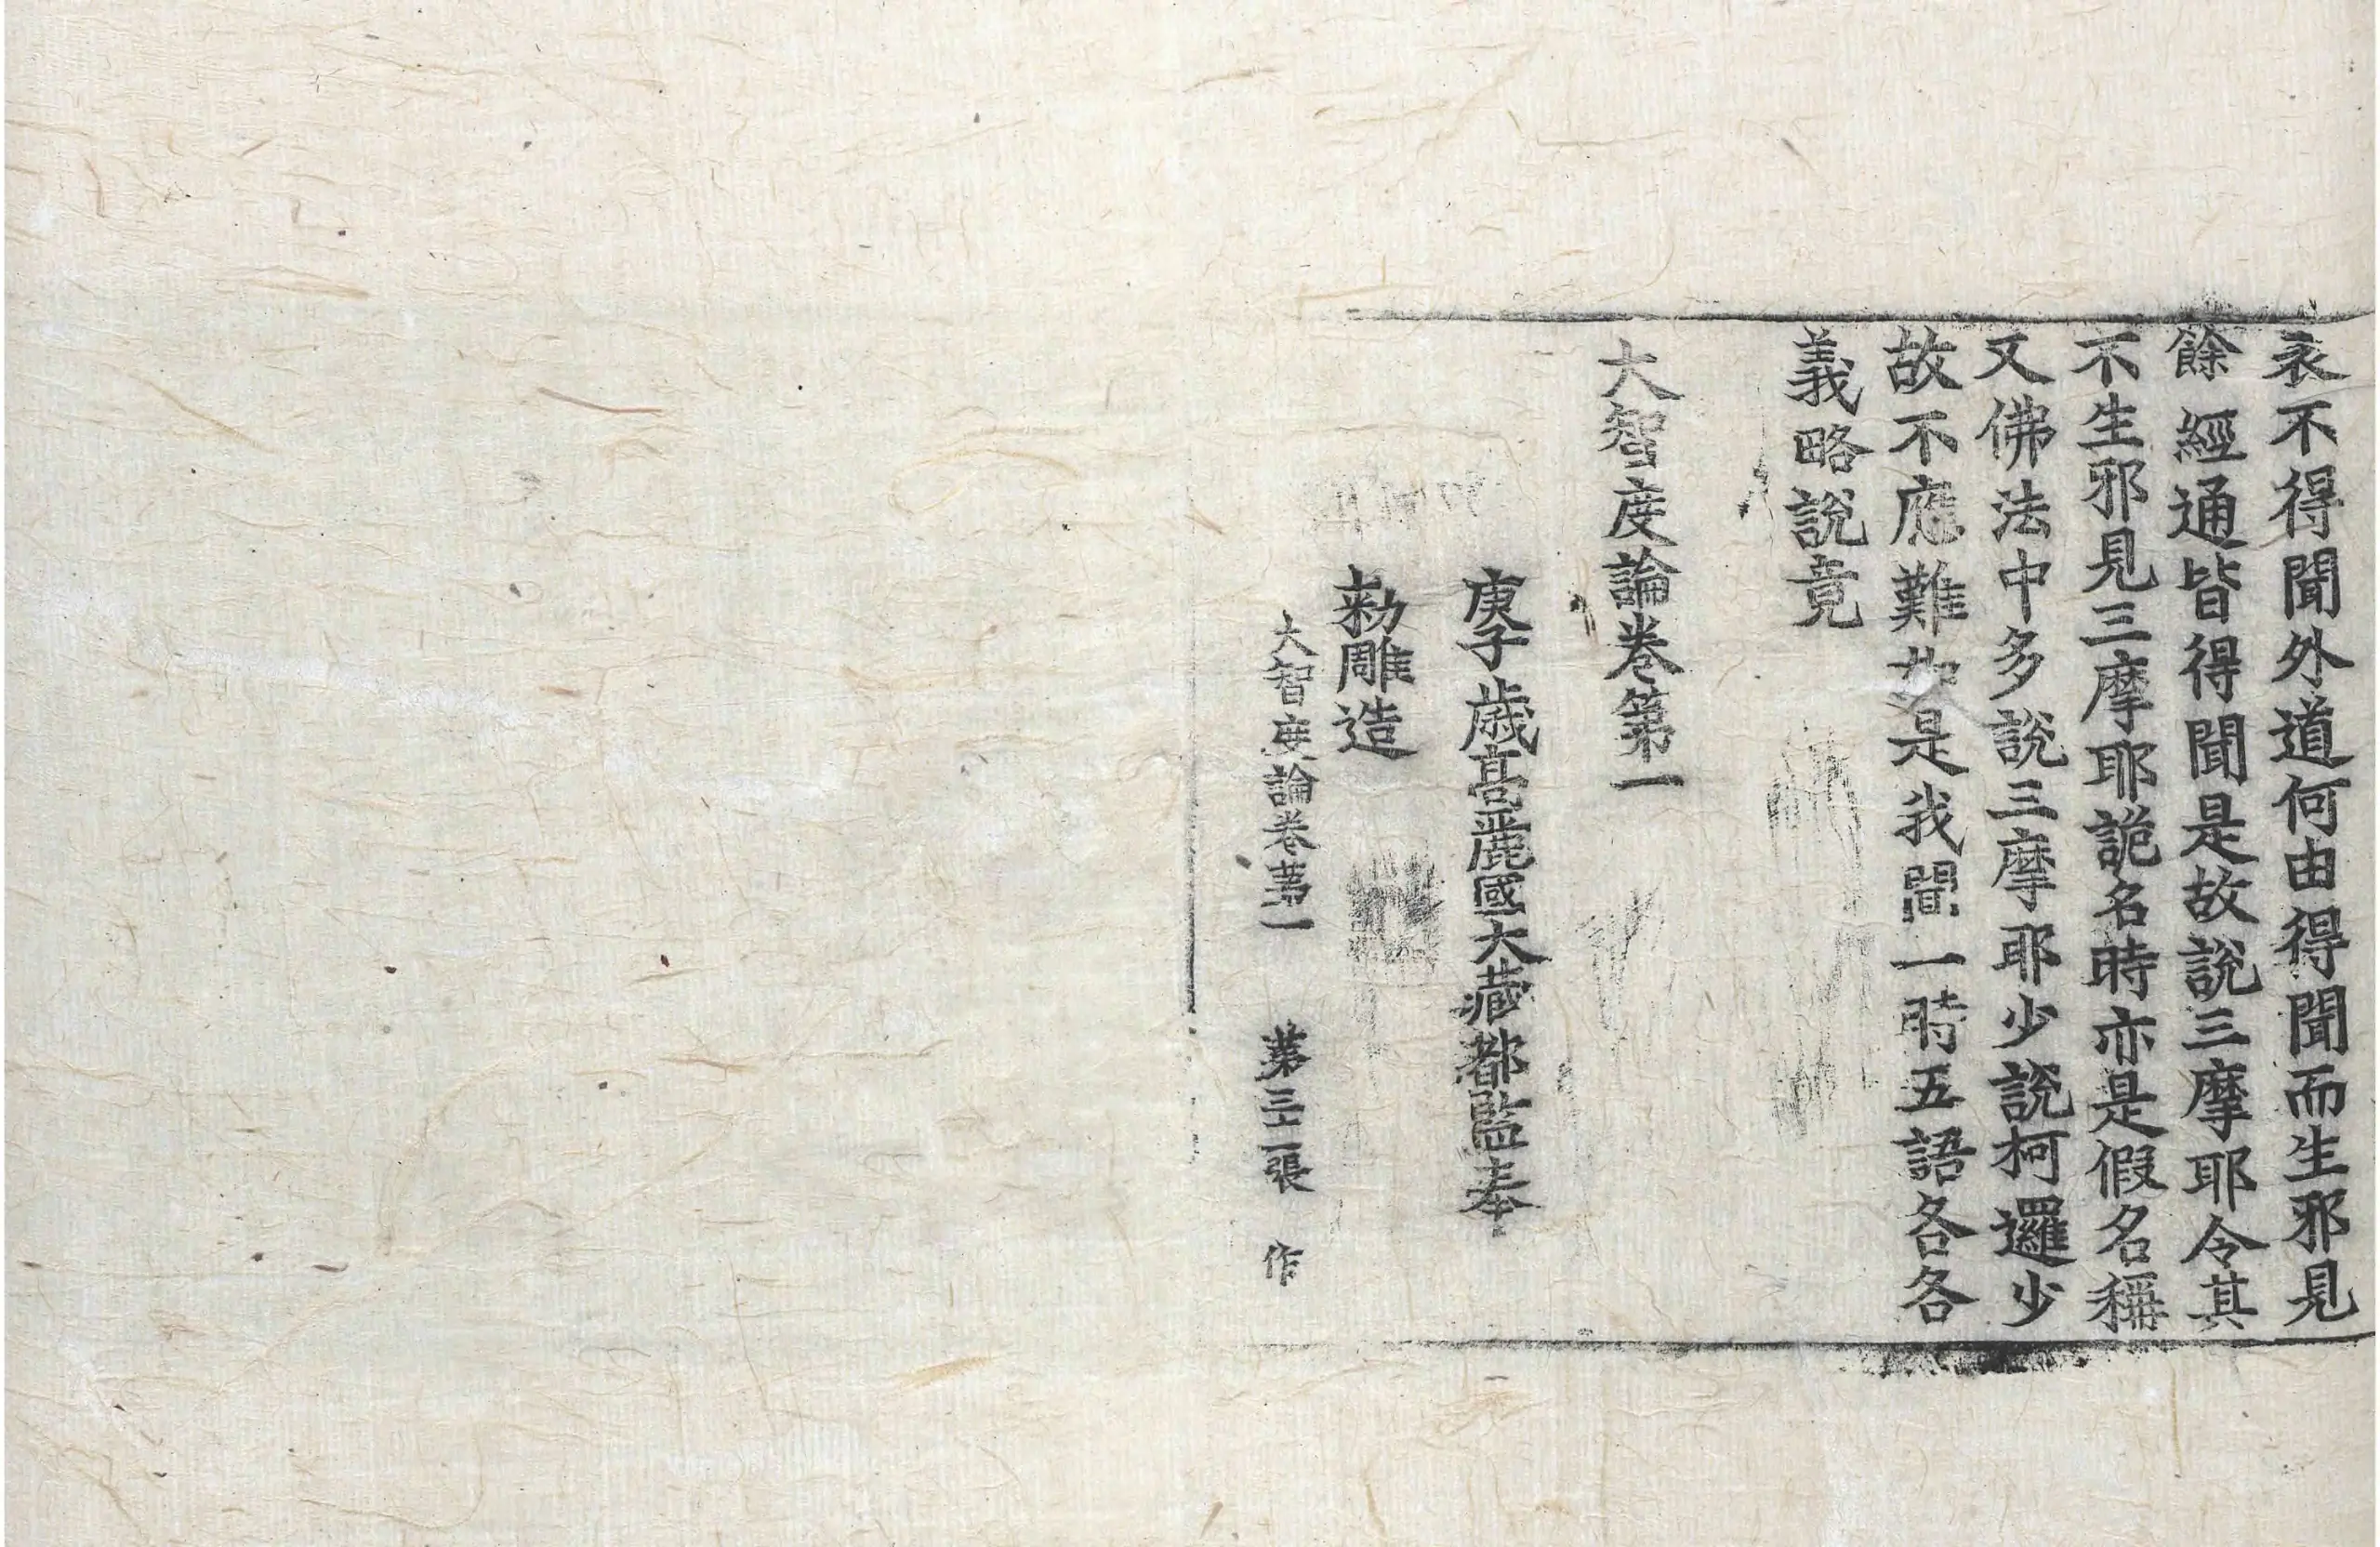 衣不得聞外道何由得聞而生邪見
餘經通皆得聞是故說三摩耶令其
不生邪見三摩耶詭名時亦是假名稱
又佛法中多說三摩耶少說柯邏少
故不應難如是我聞一時五語各各
義略說竟
大智度論卷第一
庚子歲高麗國大藏都監奉
勅雕造
大智度論卷第一 第三十二張 作